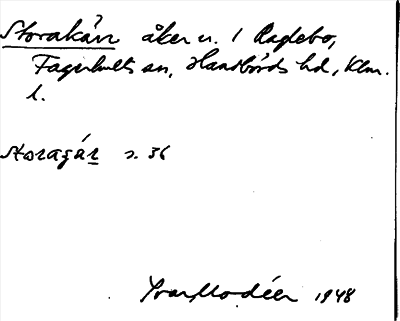 Storakärr åker u. 1 Raglebo,
Fagerhults sn, Handbörds hd, Klm.
l.
storagár s. 36
Ivar Modéer 1948